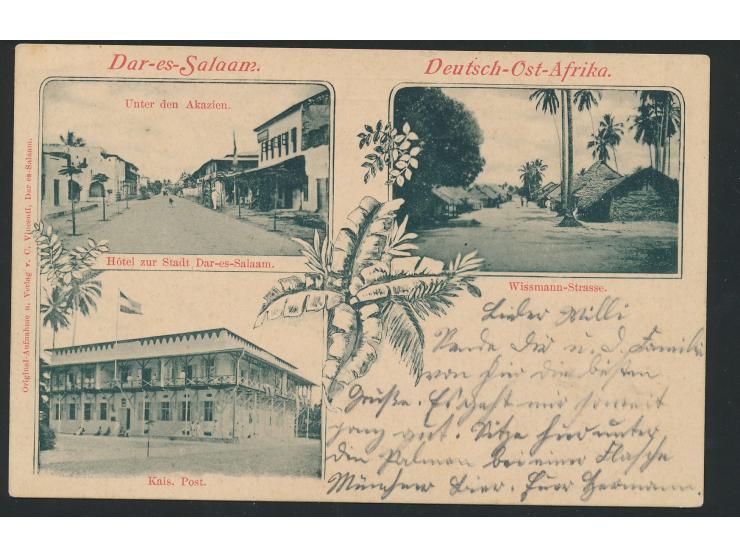 Dar-es-Salaam.
Deutsch-Ost-Afrika.
Unter den Akazien.
Hôtel zur Stadt Dar-es-Salaam.
Wissmann-Strasse.
Kais. Post.
Original-Aufnahme u. Verlag v. C. Vincenti, Dar-es-Salaam.
Lieber Willi
Sende Dir u. d. Familie
von hier die besten
Grüße. Es geht mir soweit
ganz gut. Sitze hier unter
den Palmen bei einer Flasche
Münchner Bier. Euer Hermann.